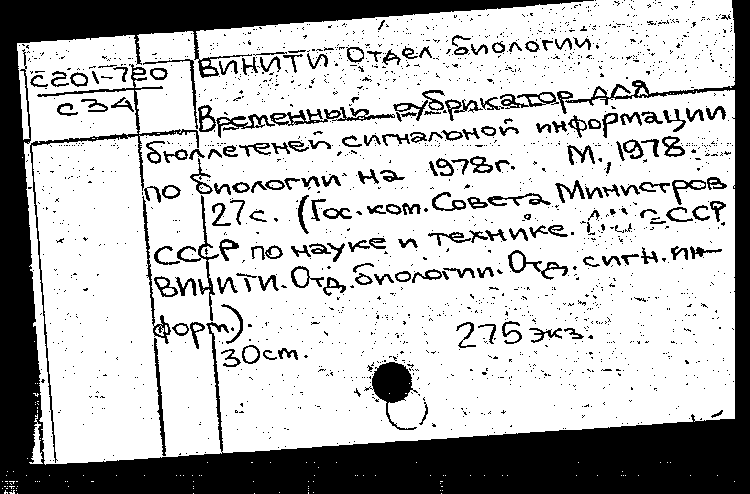 С201-720
С34
ВИНИТИ. Отдел биологии.
Временный рубрикатор для
бюллетеней сигнальной информации
по биологии на 1978г. М., 1978.
27с. (Гос. ком. Совета Министров
СССР по науке и технике. СССР.
ВИНИТИ. Отд. биологии. Отд. сигн. ин-
форм.).
30см. 275 экз.